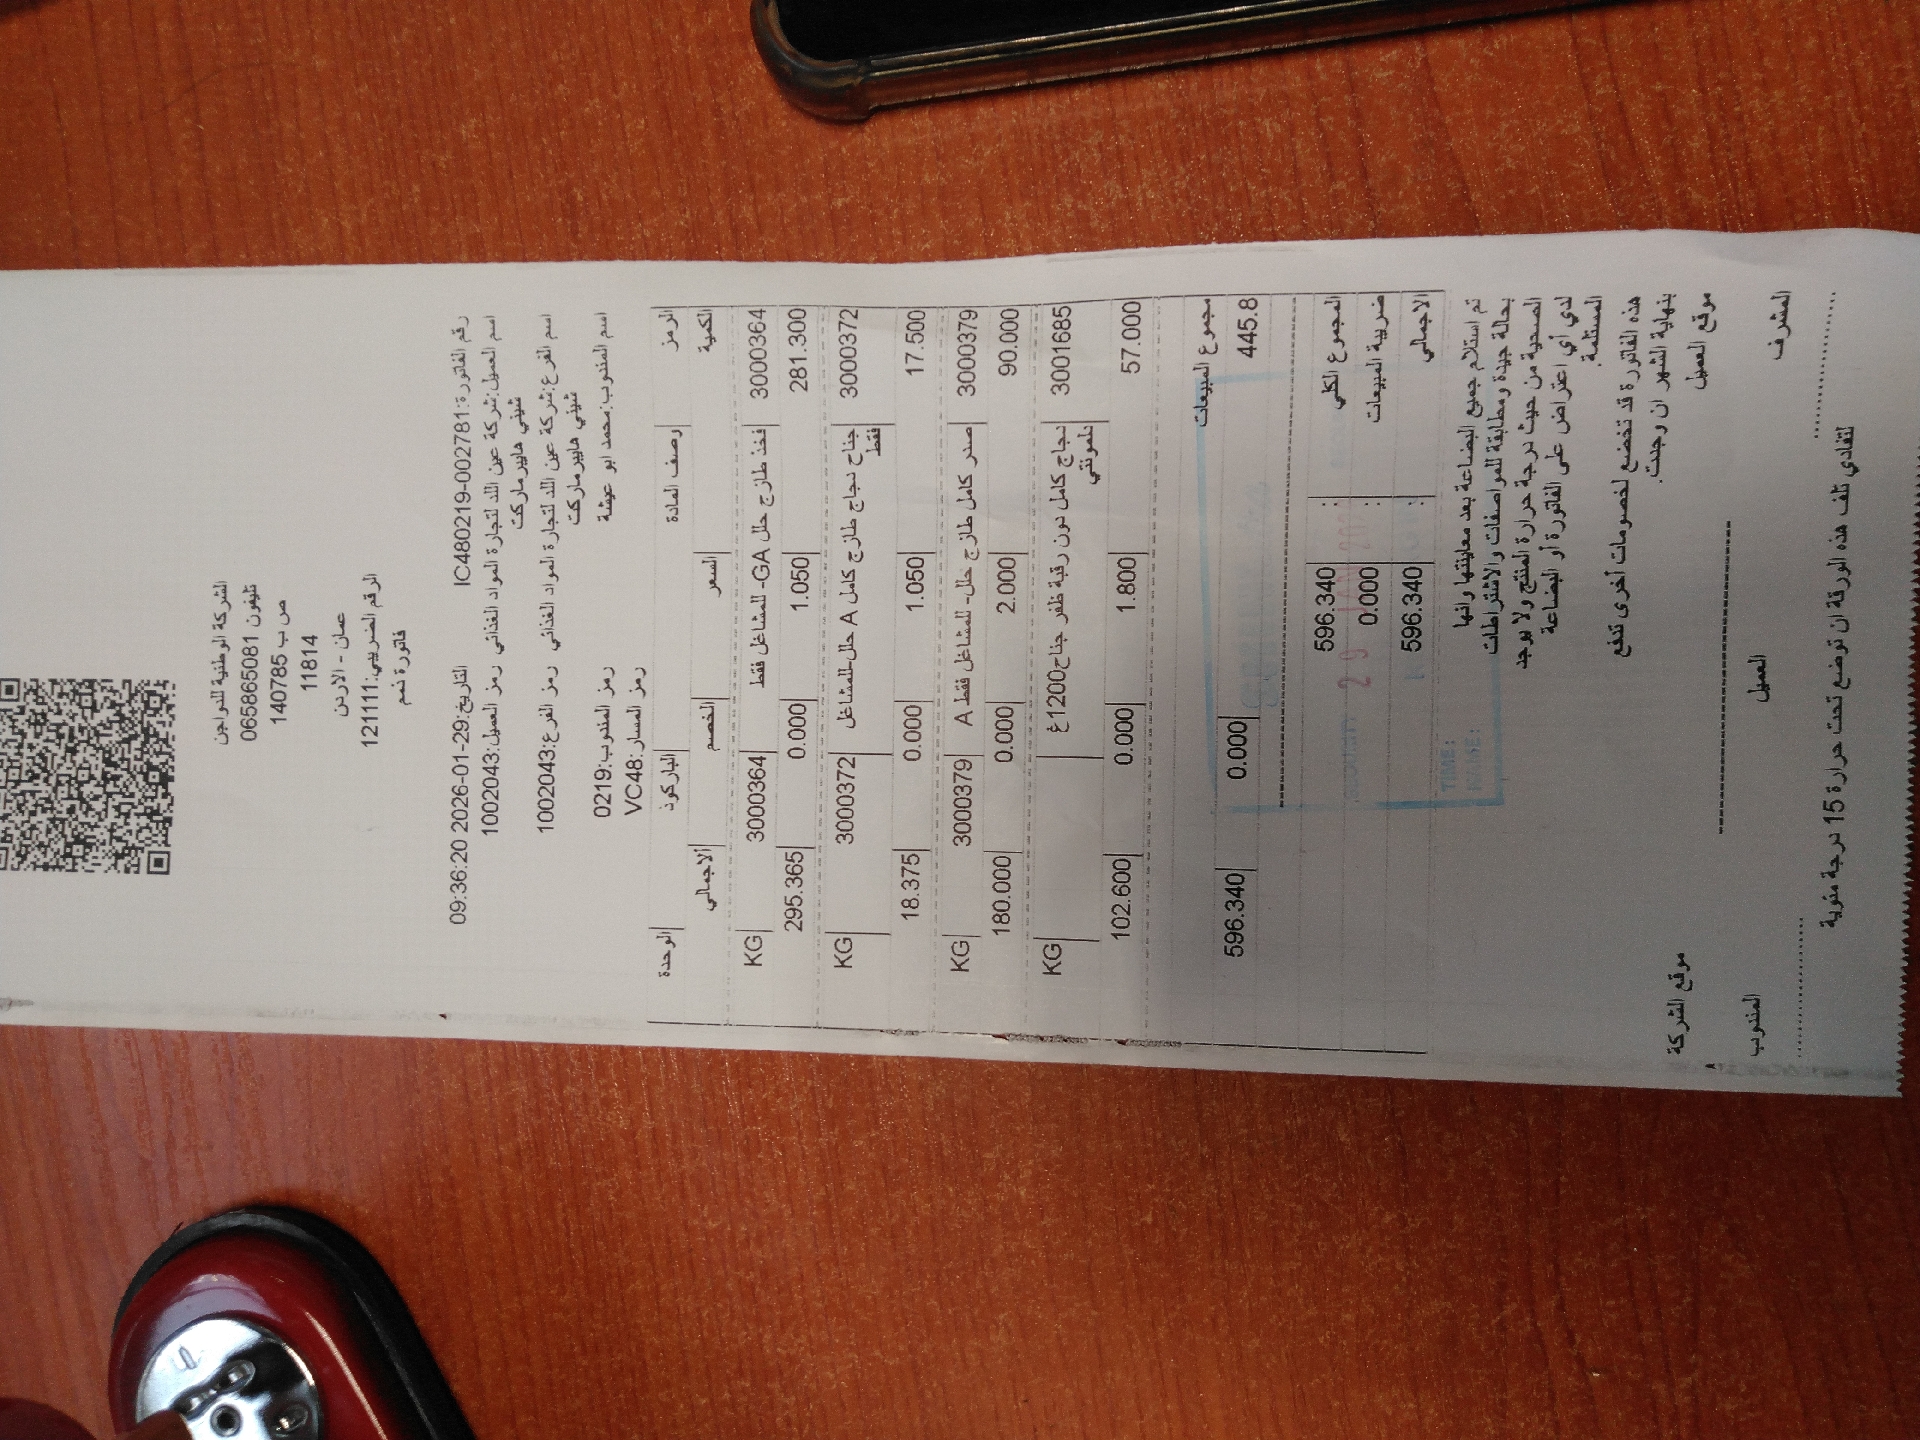 الشركة الوطنية للدواجن
تليفون 065865081
ص ب 140785
11814
عمان - الاردن
الرقم الضريبي:121111
فاتورة ذمم
رقم الفاتورة:IC480219-002781 التاريخ:2026-01-29 09:36:20
اسم العميل:شركة عين اللد لتجارة المواد الغذائي رمز العميل:1002043
شيني هايبر ماركت
اسم الفرع:شركة عين اللد لتجارة المواد الغذائي رمز الفرع:1002043
شيني هايبر ماركت
اسم المندوب:محمد ابو عيشة رمز المندوب:0219
رمز المسار:VC48
الرمز وصف المادة الباركود الوحدة
الكمية السعر الخصم الاجمالي
3000364 فخذ طازج حلل GA- للمشاغل فقط 3000364 KG
281.300 1.050 0.000 295.365
3000372 جناح دجاج طازج كامل A حلل-للمشاغل 3000372 KG
فقط
17.500 1.050 0.000 18.375
3000379 صدر كامل طازج حلل- للمشاغل فقط A 3000379 KG
90.000 2.000 0.000 180.000
3001685 دجاج كامل دون رقبة ظفر جناح1200غ KG
دلمونتي
57.000 1.800 0.000 102.600
مجموع المبيعات
445.8 0.000 596.340
المجموع الكلي : 596.340
ضريبة المبيعات : 0.000
الاجمالي : 596.340
29 JAN 202
TIME:
NAME:
تم استلام جميع البضاعة بعد معاينتها وانها
بحالة جيدة ومطابقة للمواصفات والاشتراطات
الصحية من حيث درجة حرارة المنتج ولا يوجد
لدي أي اعتراض على الفاتورة أو البضاعة
المستلمة.
هذه الفاتورة قد تخضع لخصومات أخرى تدفع
بنهاية الشهر ان وجدت.
موقع العميل موقع الشركة
المشرف العميل المندوب
لتفادي تلف هذه الورقة ان توضع تحت حرارة 15 درجة مئوية